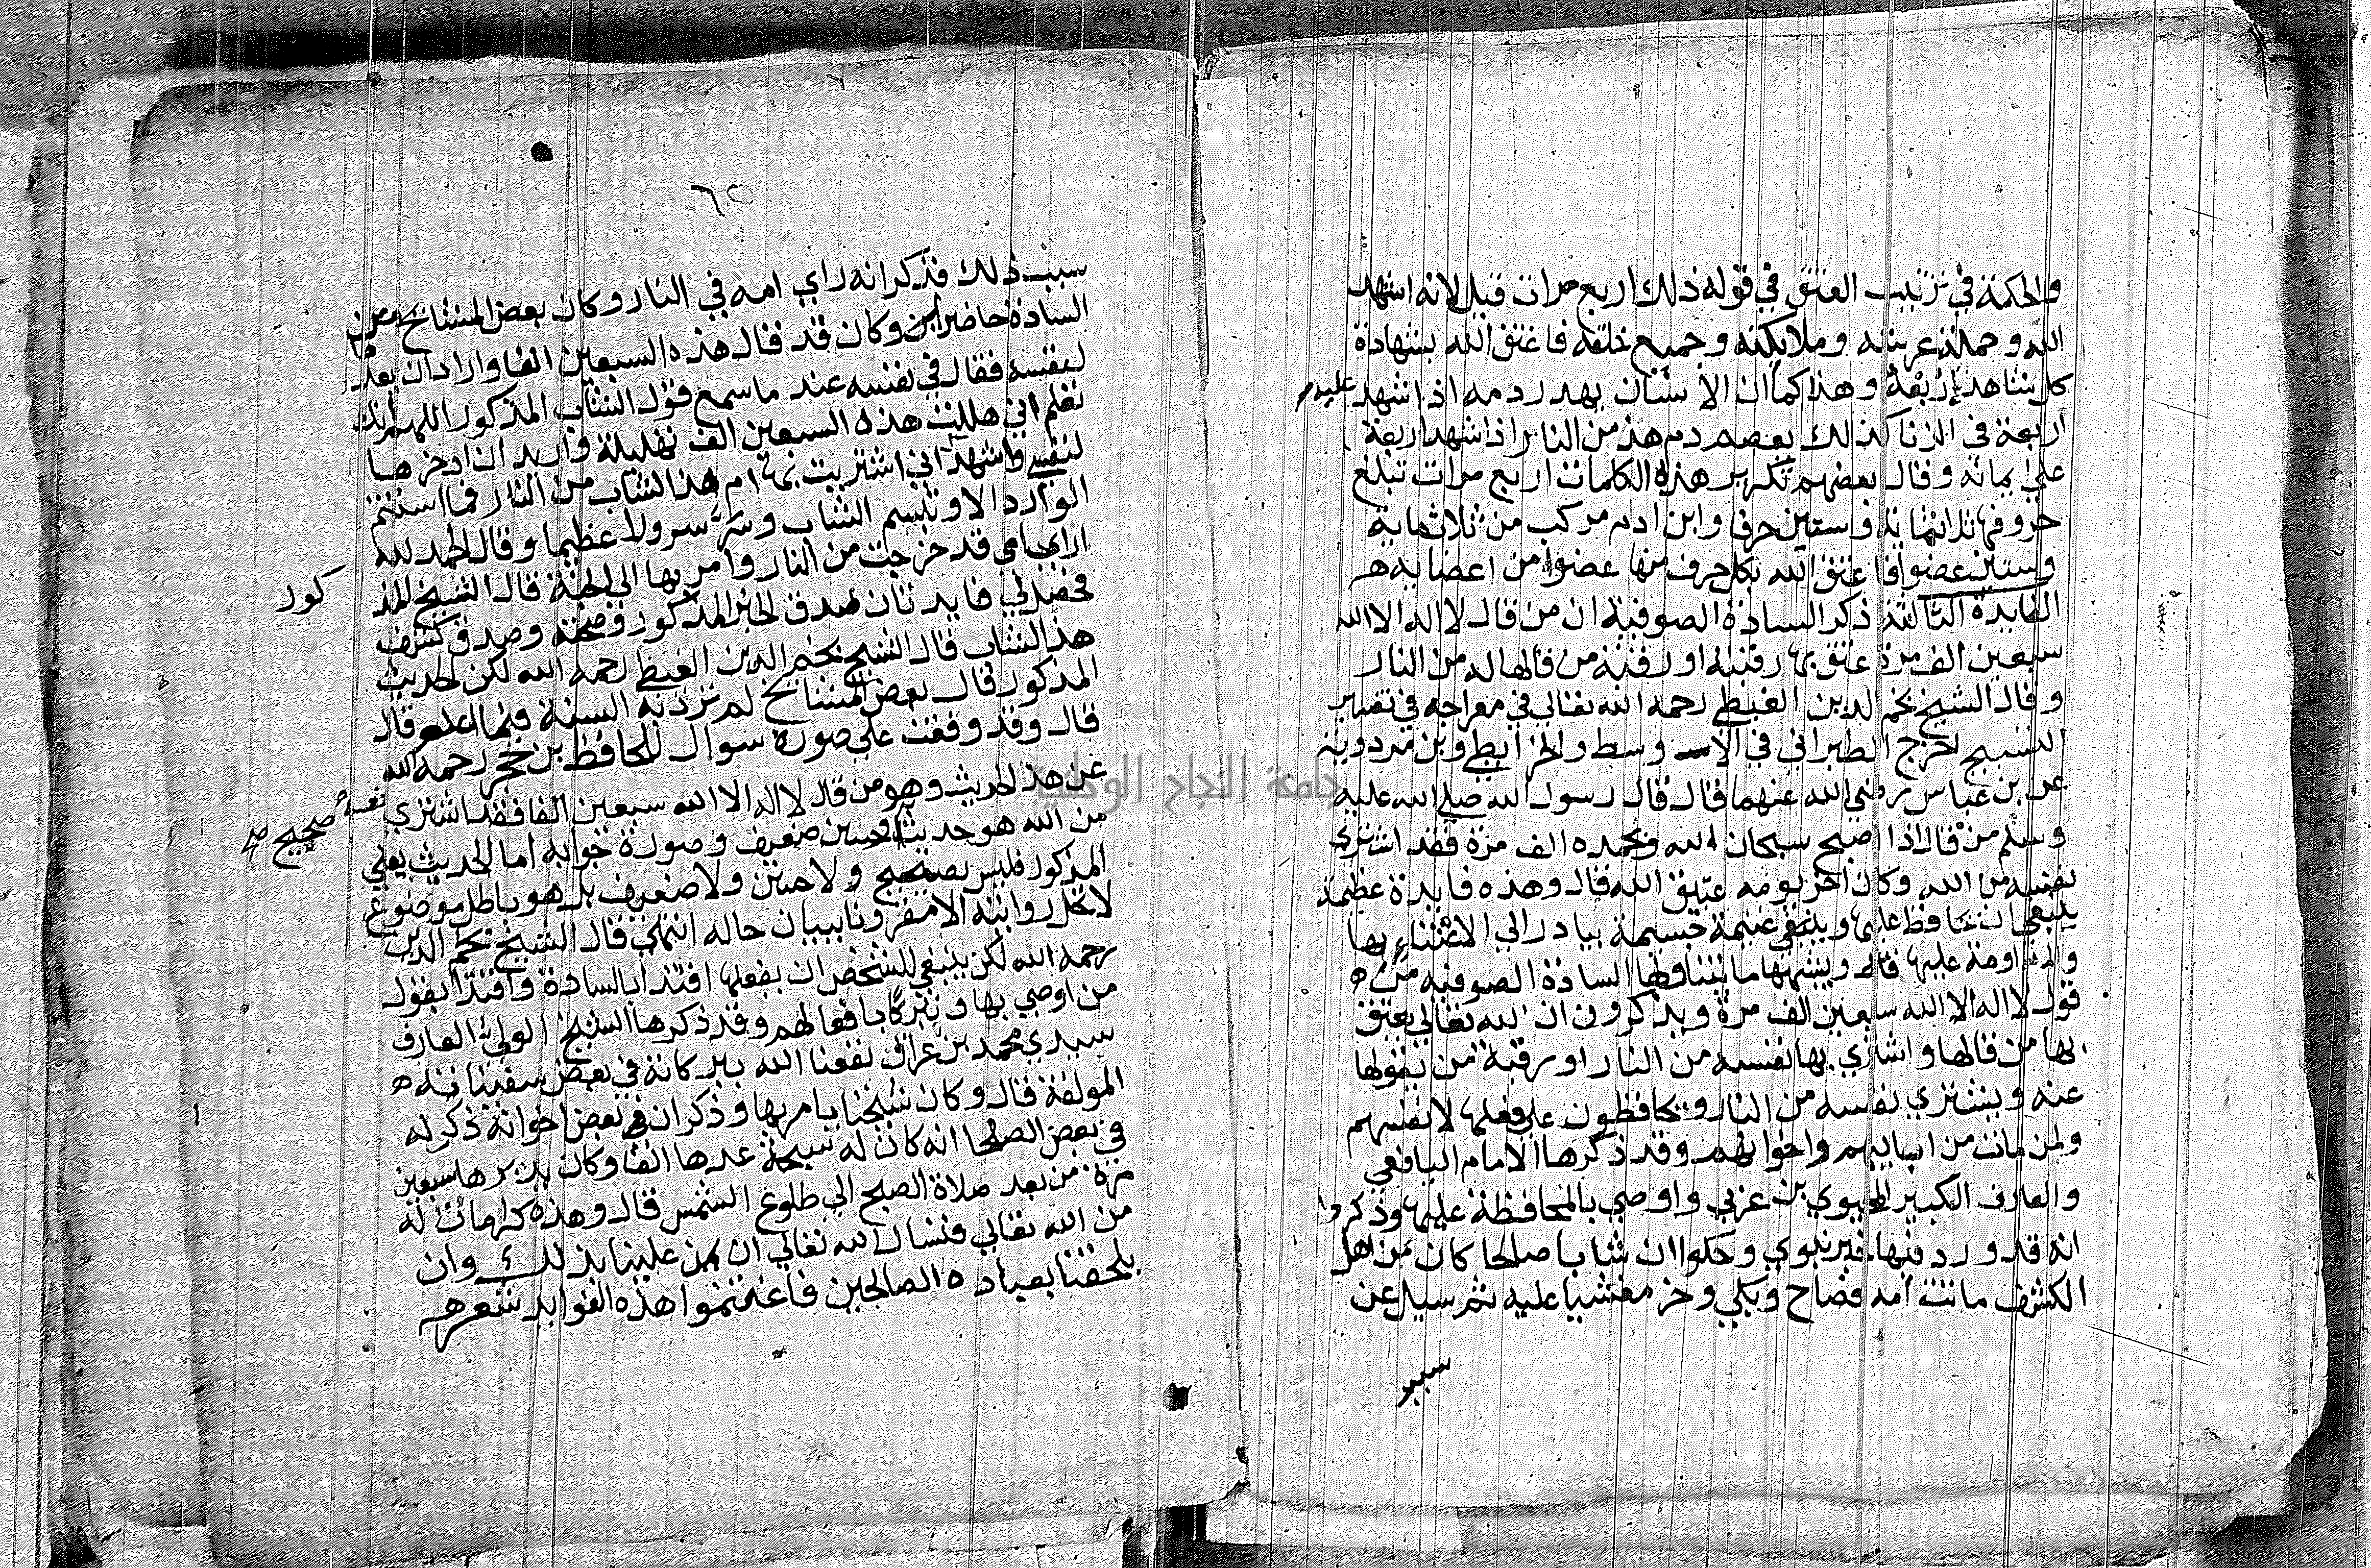 والحكمة في ترتيب العتق في قوله ذلك اربع مرات قيل لانه اشهد
الله وحملة عرشه وملايكته وجميع خلقه فاعتق الله بشهادة
كل شاهد اربعة وهذا كما ان الانسان يهدر دمه اذا شهد عليه
اربعة في الزنا كذلك يعصم دم هذ من النار اذا شهد اربعة
علي ايمانه وقال بعضهم تكرير هذه الكلمات اربع مرات تبلغ
حروفها ثلاثماية وستين حرف وابن ادم مركب من ثلاثماية
وستين عضوا فاعتق الله بكل حرف منها عضوا من اعضايه
الفايدة الثالثة ذكر السادة الصوفية ان من قال لا اله الا الله
سبعين الف مرة عتق بها رقبته او رقبة من قالها له من النار
وقال الشيخ نجم الدين الغيطي رحمه الله تعالي في معراجه في تفسير
التسبيح اخرج الطبراني في الاوسط والخرايطي وبن مردويه
عن بن عباس رضي الله عنهما قال قال رسول الله صلي الله عليه
وسلم من قال اذا اصبح سبحان الله وبحمده الف مرة فقد اشتري
نفسه من الله وكان اخر يومه عتيق الله قال وهذه فايدة عظيمة
ينبغي ان يحافظ عليها وينبغي غنيمة جسيمة يبادر الي الاعتناء بها
والمداومة عليها قال ويشبهها ما يتناوله السادة الصوفيه من
قول لا اله الا الله سبعين الف مرة ويذكرون ان الله تعالي يعتق
بها من قالها واشتري بها نفسه من النار او رقبة من يقولها
عنه ويشتري نفسه من النار ويحافظون علي فعلها لانفسهم
ولمن مات من اهاليهم واخوانهم وقد ذكرها الامام اليافعي
والعارف الكبير المحيوي بن عربي واوصي بالمحافظة عليها وذكروا
انه قد ورد فيها خبر نبوي وحكوا ان شابا صالحا كان من اهل
الكشف ماتت امه فصاح وبكي وخر مغشيا عليه ثم سيل عن
سبب
٦٥
سبب ذلك فذكر انه راي امه في النار وكان بعض المشايخ من
السادة حاضرا وكان قد قال هذه السبعين الفا واراد ان يعد
لنفسه فقال في نفسه عند ما سمع قول الشاب المذكور اللهم انك
تعلم اني هللت هذه السبعين الف تهليلة واريد ان ادخرها
لنفسي واشهد اني اشتريت بها ام هذا الشاب من النار فما استتم
الوارد الا وتبسم الشاب وسر سرورا عظيما وقال الحمد لله
اراي امي قد خرجت من النار وامر بها الي الجنة قال الشيخ المذ
كور
فحصل لي فايدتان صدق الخبر المذكور وصحته وصدق كشف
هذا الشاب قال الشيخ نجم الدين الغيطي رحمه الله لكن الحديث
المذكور قال بعض المشايخ لم ترد به السنة فيما اعلم قال
قال وقد وقفت علي صورة سوال للحافظ بن حجر رحمه الله
عن هذا الحديث وهو من قال لا اله الا الله سبعين الفا فقد اشتري نفسه
من الله هو حديث صحيح او حسن او ضعيف وصورة جوابه اما الحديث
المذكور فليس بصحيح ولا حسن ولا ضعيف بل هو باطل موضوع
لا تحل روايته الا مقرونا ببيان حاله انتهي قال الشيخ نجم الدين
رحمه الله لكن ينبغي للشخص ان يفعلها اقتداء بالسادة واقتدا بقول
من اوصي بها وتبركا بافعالهم وقد ذكرها الشيخ الولي العارف
سيدي محمد بن عراق نفعنا الله ببركاته في بعض
المولفة قال وكان شيخنا يامر بها وذكر ان بعض اخوانه ذكر له
في بعض الصلحا انه كان له سبحة عدها الف وكان يديرها سبعين
مرة من بعد صلاة الصبح الي طلوع الشمس قال وهذه كرامات له
من الله تعالي فنسال الله تعالي ان يمن علينا بذلك وان
يلحقنا بعباده الصالحين فاغتنموا هذه الفوايد شعر